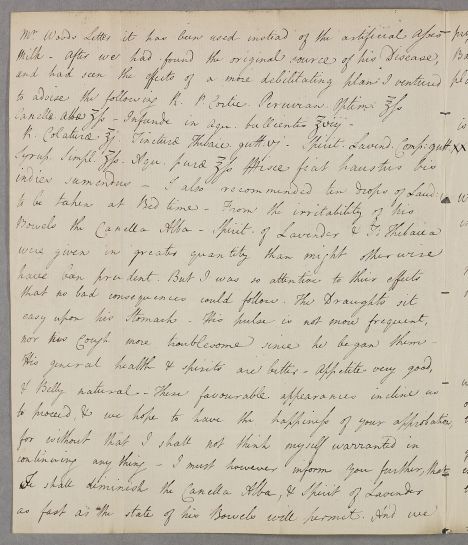 Mr Woods Letter it has been used instead of the artificial Asses
Milk - After we had found the original source of his Disease,
and had seen the effects of a more debilitating plan I ventured
to advise the following R. P. Cortic. Peruvian. Optim ℥ſs
Canellæ albæ ʒſs - Infunde in aqu. bullientis ℥viij -
R. Colaturæ ℥j. Tincturæ Thebaic gutt. vj - Spirit. Lavend. Comp: gutt XX
Syrup. Simpl. ʒſs. Aqu. puræ ℥ſs Misce fiat haustus bis
indies sumendus - I also recommended ten drops of Laud:
to be taken at Bed time - From the irritability of his
Bowels the Canella Alba - Spirit. of Lavender & Tr Thebaica
were given in greater quantity than might otherwise
have been prudent. But I was so attentive to their effects
that no bad consequences could follow. The Draughts sit
easy upon his Stomach - His pulse is not more frequent,
nor his Cough more troublesome since he began them -
His general health & spirits are better - Appetite very good,
& Belly natural - These favourable appearances incline us
to proceed, & we hope to have the happiness of your approbation,
for without that I shall not think myself warranted in
continuing any thing - I must however inform you further, that
He shall diminish the Canella Alba, & Spirit of Lavender
as fast as the state of his Bowels will permit. And we